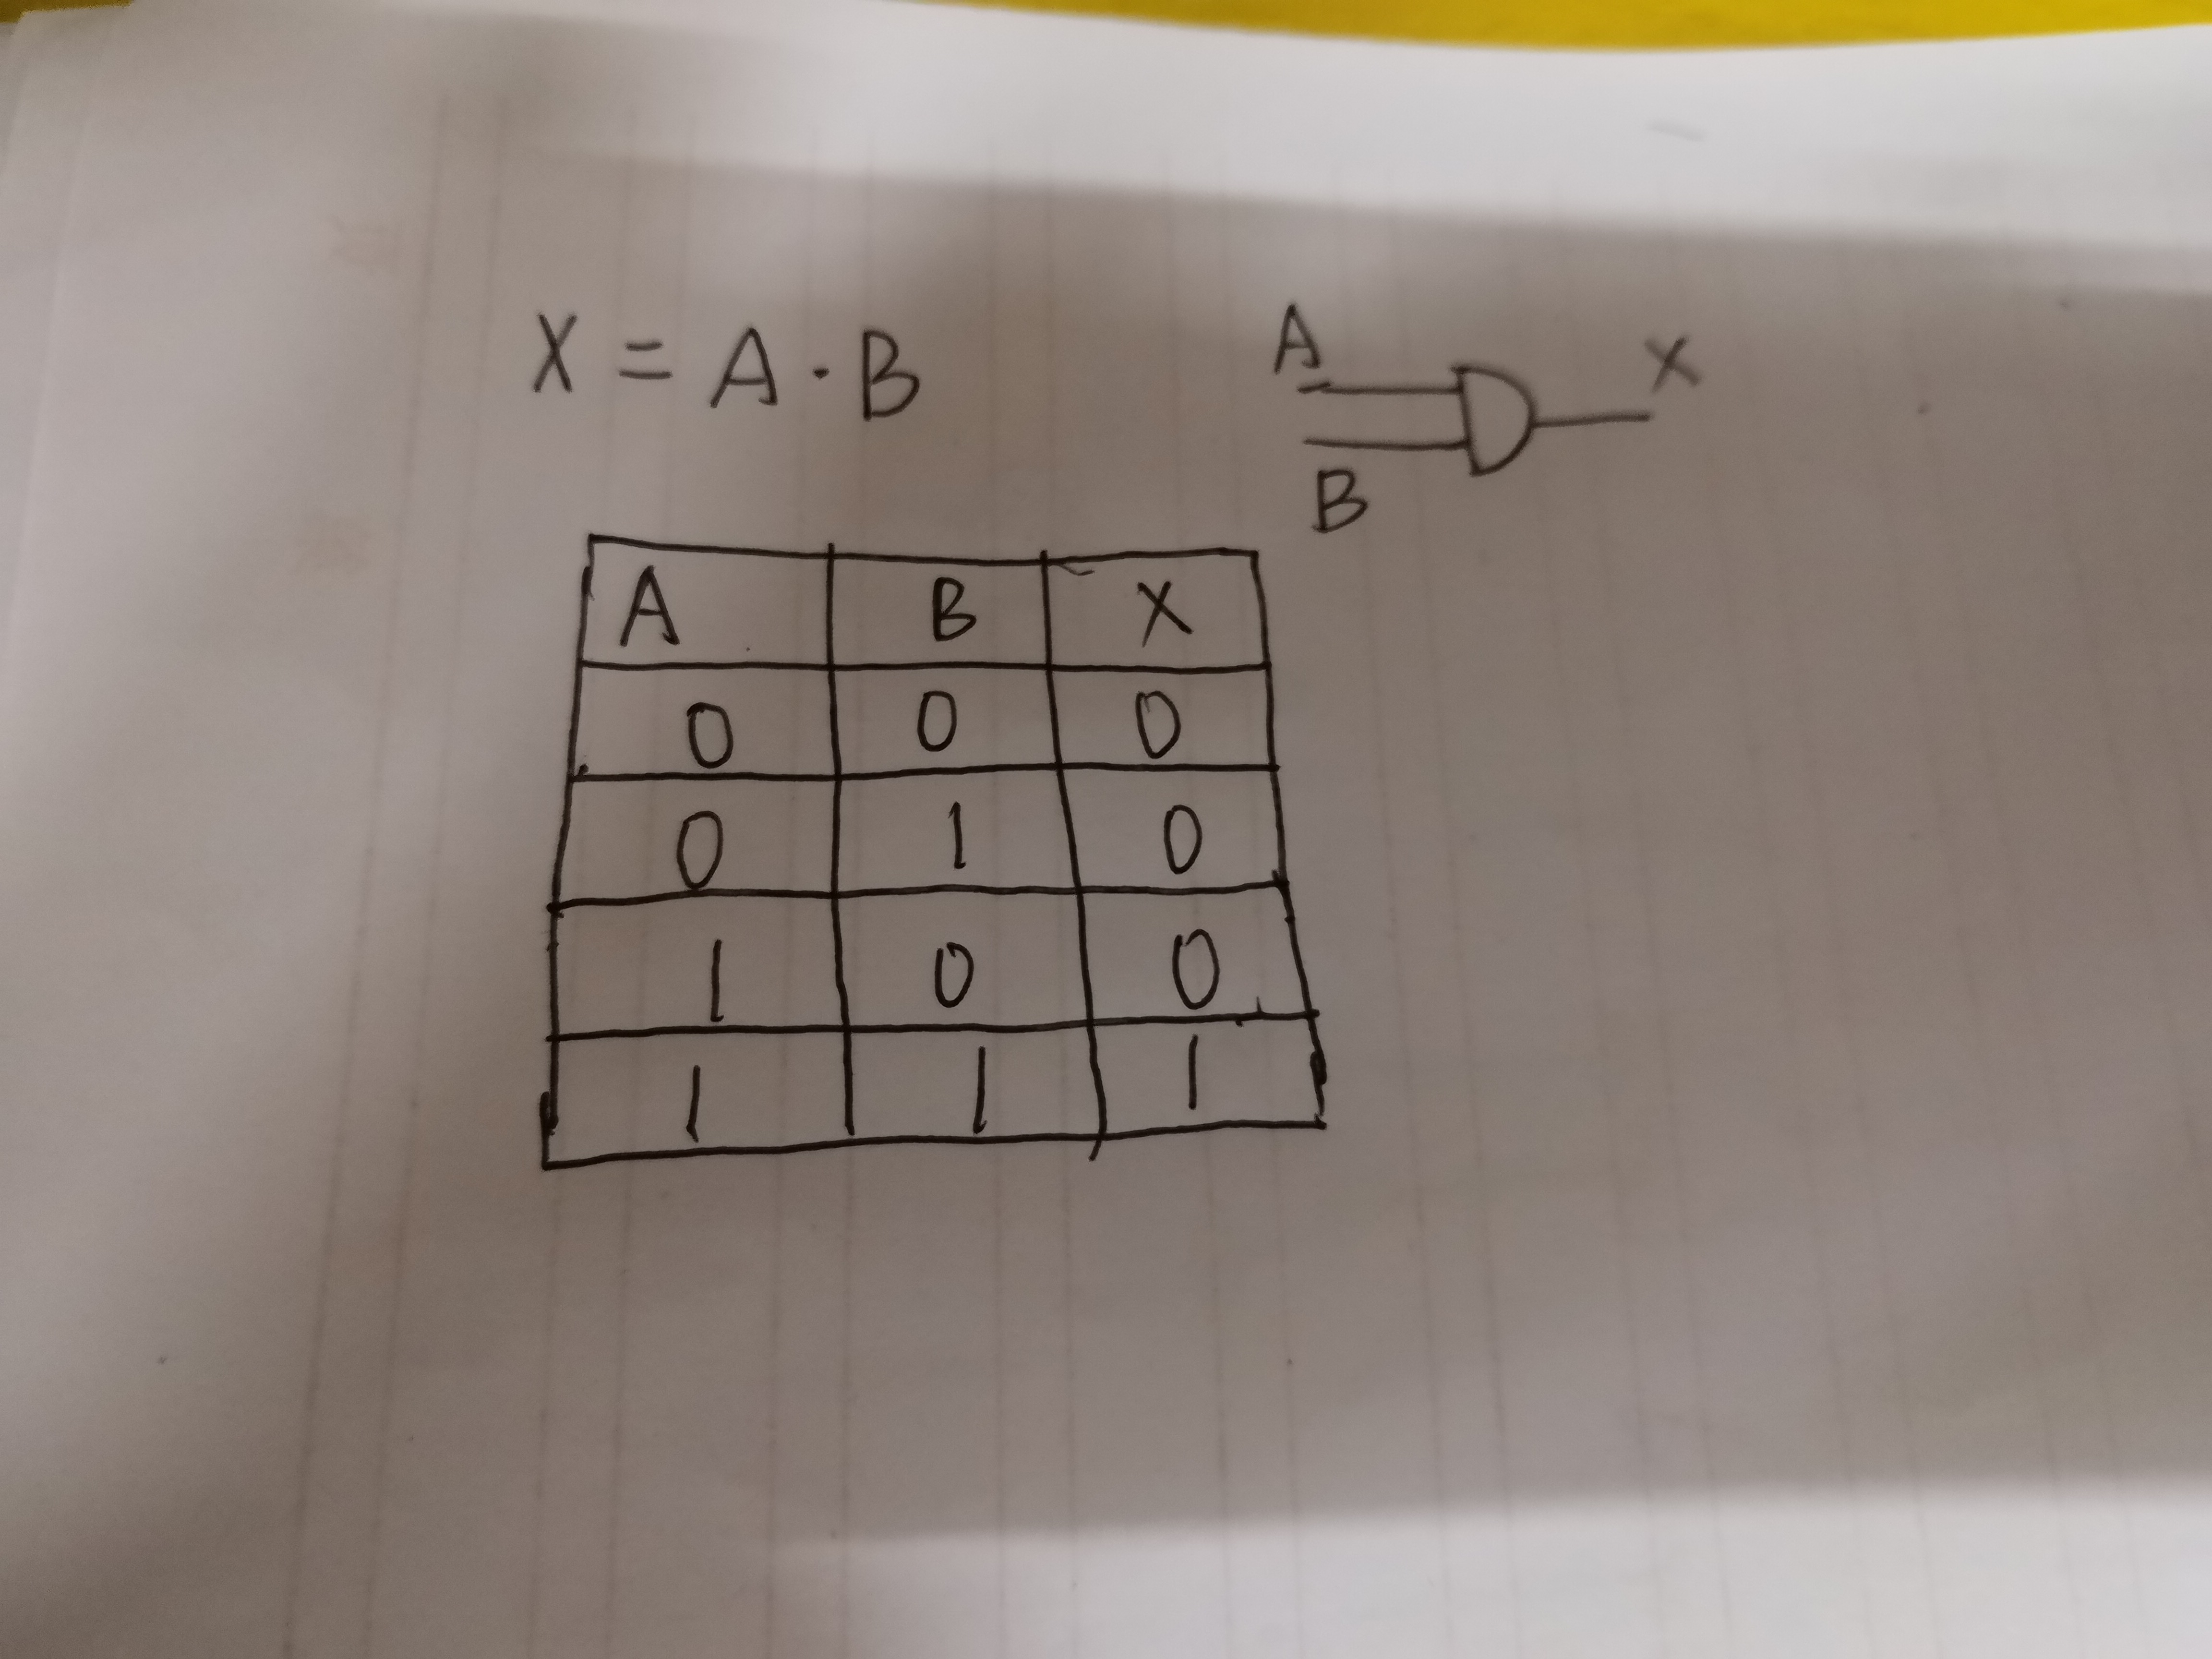 X = A · B
A X
B
A B X
0 0 0
0 1 0
1 0 0
1 1 1